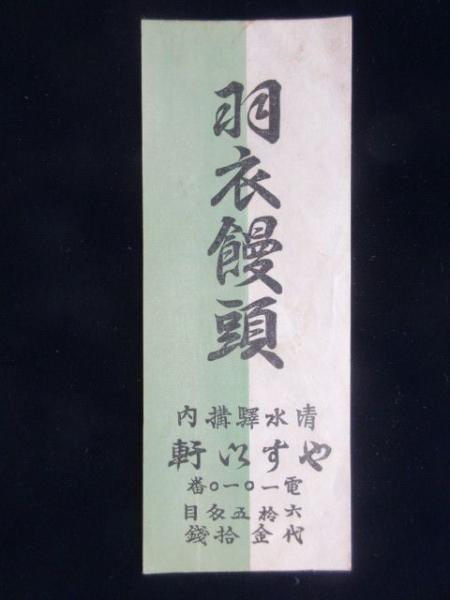 羽衣饅頭
清水驛構内
やすい軒
電一〇一〇番
六拾五匁目
代金拾錢